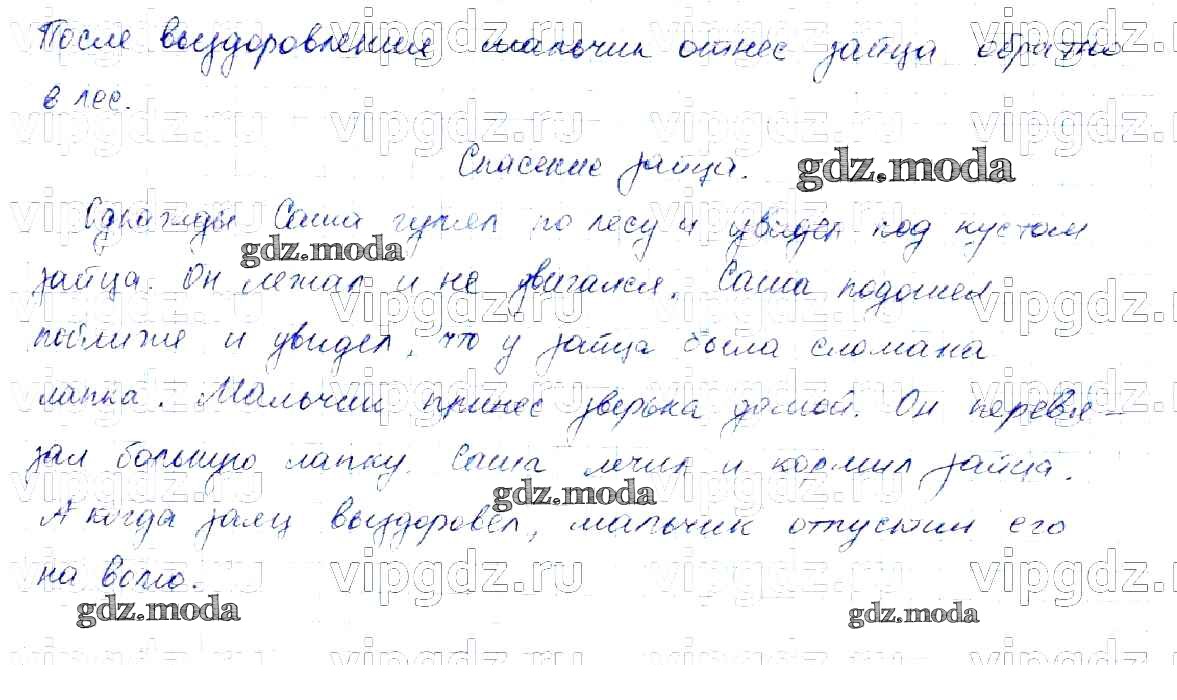 После выздоровления мальчик отнес зайца обратно
в лес.
Спасение зайца.
gdz.moda
Однажды Саша гулял по лесу и увидел под кустом
gdz.moda
зайца. Он лежал и не двигался. Саша подошел
поближе и увидел, что у зайца была сломана
лапка. Мальчик принес зверька домой. Он перевя-
зал больную лапку. Саша лечил и кормил зайца.
gdz.moda
А когда заяц выздоровел, мальчик отпустил его
на волю.
gdz.moda
gdz.moda
vipgdz.ru